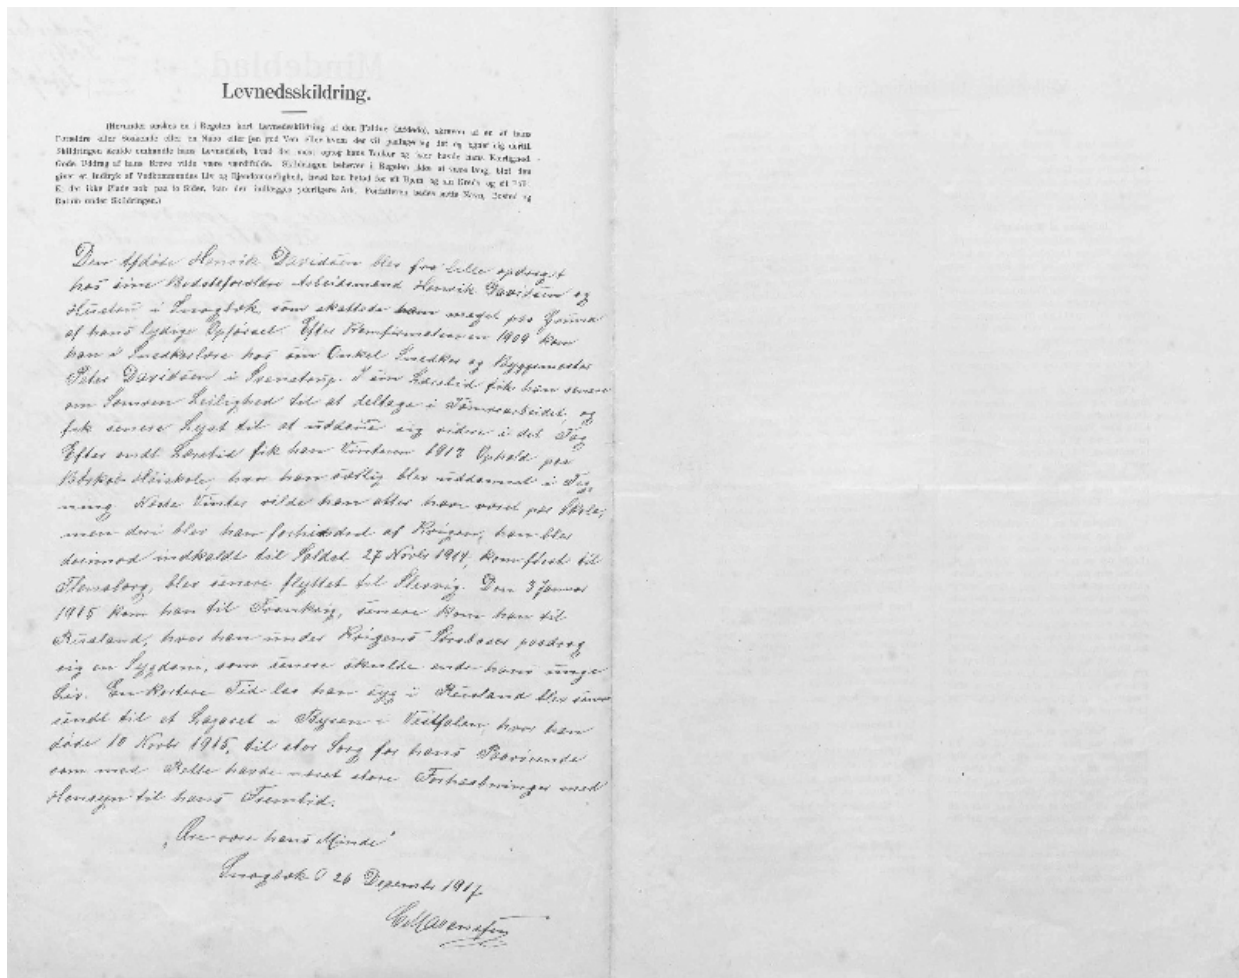 Levnedsskildring.
(Herunder ønskes en i Regelen kort Levnedsskildring af den Faldne (Afdøde), skreven af en af hans
Forældre eller Søskende eller en Nabo eller Ven eller hvem der vil paatage sig det og egner sig dertil.
Skildringen skulde omhandle hans Levnedsløb, hvad der mest optog hans Tanker og især havde hans Kærlighed.
Gode Uddrag af hans Breve vilde være værdifulde. Skildringen behøver i Regelen ikke at være lang, blot den
giver et Indtryk af Vedkommendes Liv og Ejendommelighed, hvad han betød for sit Hjem og sin Kreds og sit
Er der ikke Plads nok paa to Sider, kan der indlægges yderligere Ark. Forfatteren bedes sætte Navn, Bosted og
Datum under Skildringen.)
Den Afdøde Henrik Davidsen blev fra lille opdraget
hos sine Bedsteforældre Arbeidsmand Henrik Davidsen og
Hustru i Snogbæk, som skattede ham meget paa Grund
af hans lydige Opførsel. Efter Konfirmationen 1909 kom
han i Snedkerlære hos sin Onkel Snedker og Byggemester
Peter Davidsen i Svenstrup. I sin Læretid fik han senere
om Somren Leilighed til at deltage i Tømrerarbeidet, og
fik senere Lyst til at uddane sig videre i det Fag
Efter endt Læretid fik han Vinteren 1913 Ophold paa
Høiskole hvor han særlig blev uddannet i Teg-
ning. Næste Vinter vilde han atter have været paa Skole,
men deri blev han forhindred af Krigen, han blev
derimod indkaldt til Soldat 27 Novbr 1914, kom først til
Flensborg, blev senere flyttet til Slesvig. Den 3 Januar
1915 kom han til Frankrig, senere kom han til
Rusland, hvor han under Krigens Strabaser paadrog
sig en Sygdom, som senere skulde ende hans unge
Liv. En kortere Tid laa han syg i Rusland blev saa
sendt til et Lazaret i i Vestfalen, hvor han
døde 10 Novbr 1915, til stor Sorg for hans Paarørende
som med Rette havde næret store Forhaabninger med
Hensyn til hans Fremtid.
"Ære være hans Minde"
Snogbæk d 26 Dezember 1917